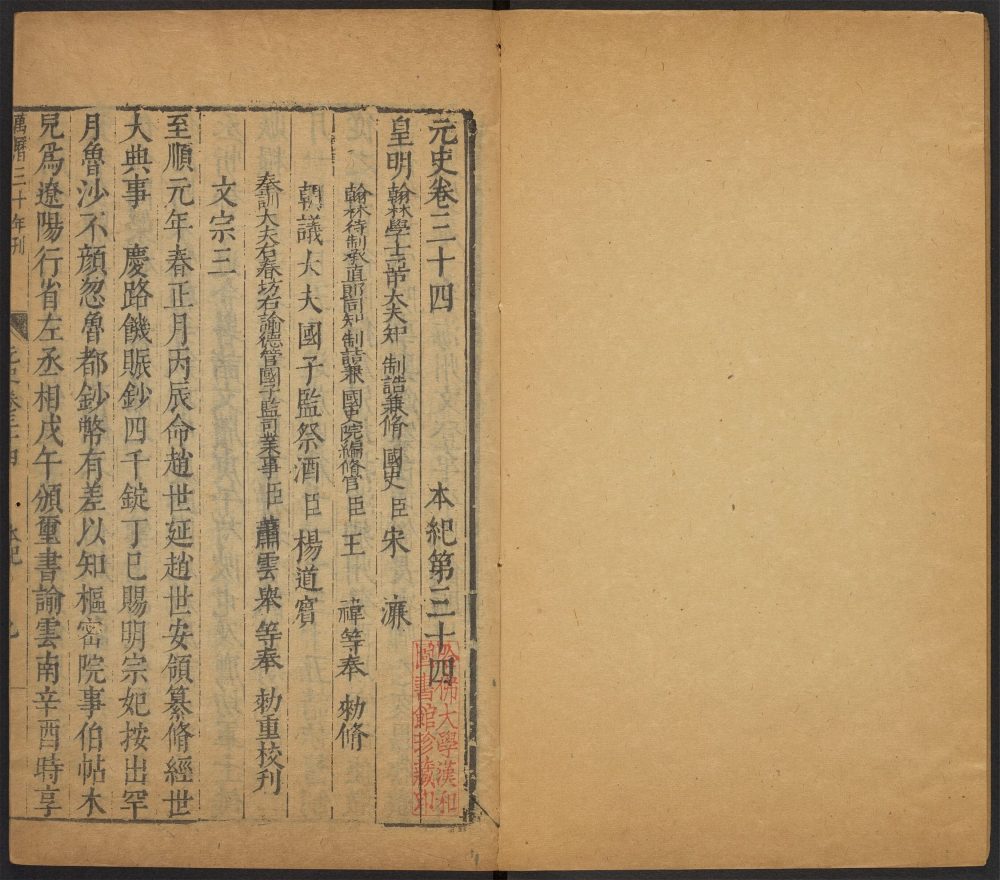 元史卷三十四 本紀第三十四
皇明翰林學士亞中大夫知 制誥兼脩 國史臣宋 濂
翰林待制承直郎同知 制誥兼 國史院編脩官臣王 禕等奉 勑脩
朝議大夫國子監祭酒臣楊道賓
奉訓大夫右春坊右諭德管國子監司業事臣蕭雲舉等奉 勑重校刋
文宗三
至順元年春正月丙辰命趙世延趙世安領纂脩經世
大典事 慶路饑賑鈔四千錠丁巳賜明宗妃按出罕
月魯沙不顔忽魯都鈔幣有差以知樞密院事伯帖木
兒爲遼陽行省左丞相戊午頒璽書諭雲南辛酉時享
萬曆三十年刋
哈佛大學漢和
圖書館珍藏印